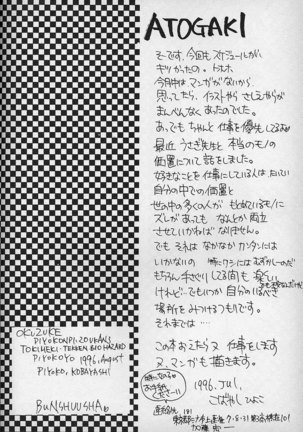 ATOGAKI
そーです。今回もスケジュールが
キツかったの。トホホ
今月中はマンガがないから
思ってたら、イラストやら さしえやらが
まんべんなくあったのでした。
あっでも ちゃんと仕事を優先してるよ
最近 うさぎ先生と 本当のモノの
価置について 話をしました。
好きなことを 仕事にしている人は、
自分の中での価置と
世の中の多くの人が もとめているモノに
ズレがあっても なんとか両立
させていかねば なりません。
でも それは なかなか カンタンには
いかないの 特にワシには むずかしーのだ
もちろん 手さぐりしてる間も 楽しい
けれど… でもいつか 自分の
場所を みつけるつもりです。
それまでは……
この本 おえたら ヌ 仕事を します
ヌ、マンガも 描きます。
1996, Jul,
こばやし ぴよこ
連絡先 181
OKUZUKE
PIYOKONPI. ZOUKANS
TOKIMEKI-TEKKEN BIO HAZARD
PIYOKOYO 1996, August
PIYOKO, KOBAYASHI
BUNSHUUSHA